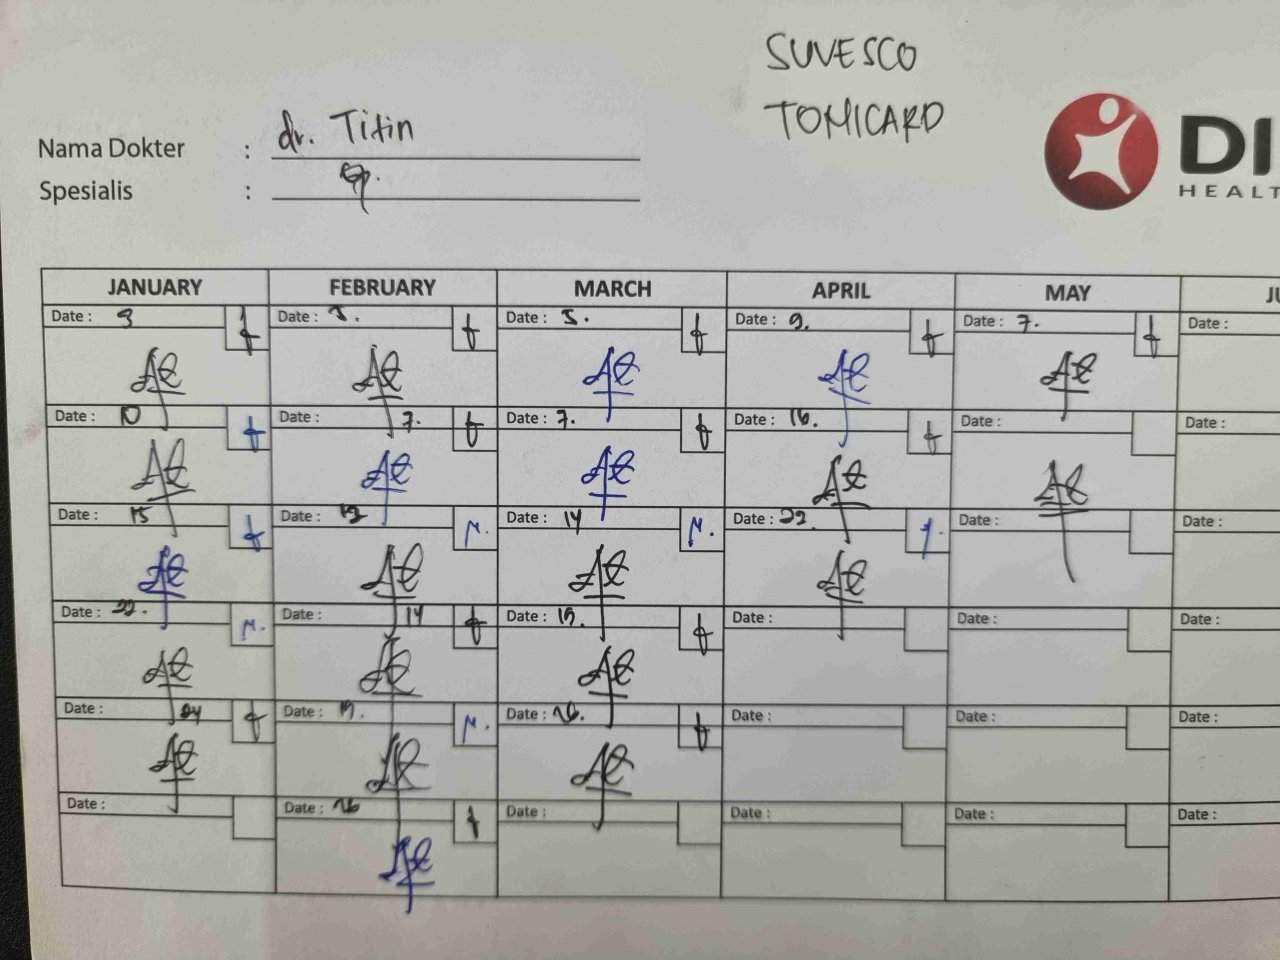 SUVESCO
TOMICARD
Nama Dokter : dr. Titin
Spesialis :
DI
HEALT
JANUARY FEBRUARY MARCH APRIL MAY JU
Date : 9 Date : Date : 5. Date : 9. Date : 7. Date :
Date : 10 Date : 7. Date : 7. Date : 16. Date : Date :
Date : 15 Date : Date : 14 Date : 22. Date : Date :
Date : 22. Date : 14 Date : 19. Date : Date : Date :
Date : 24 Date : 19. Date : 26. Date : Date : Date :
Date : Date : 26 Date : Date : Date : Date :